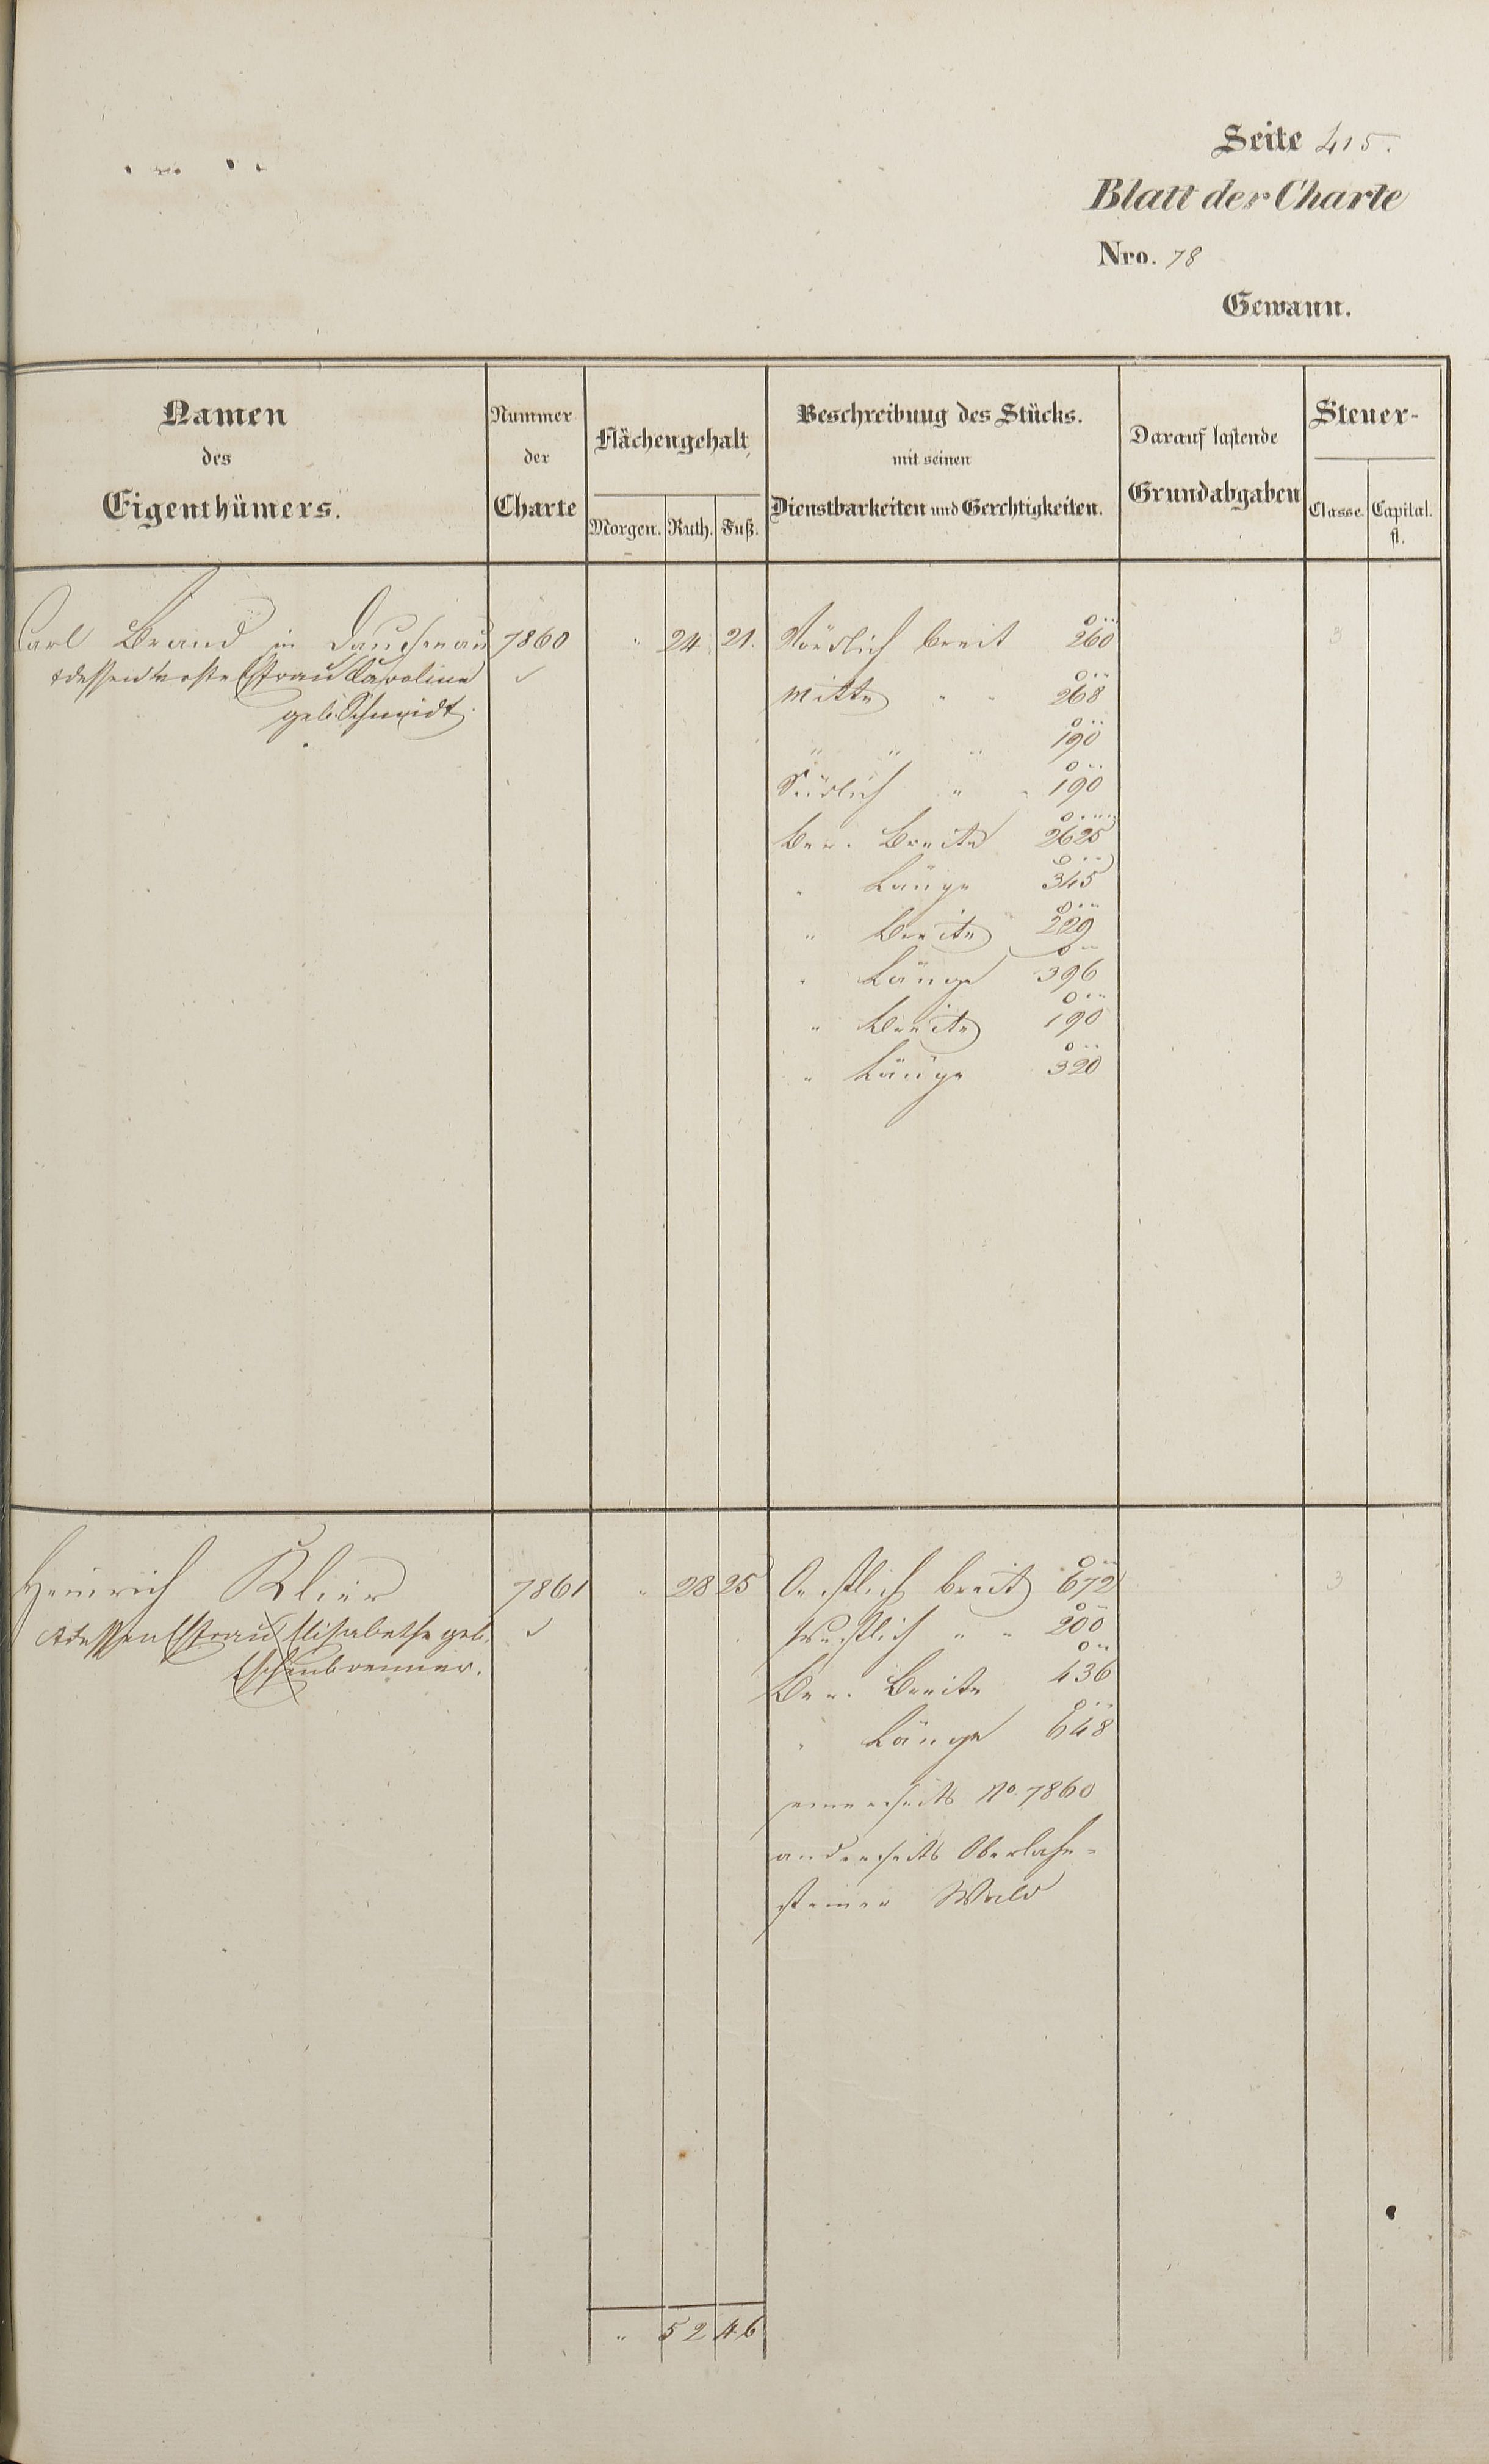 Seite 415.
Blatt der Charte
Nro. 78
Gewann.
Namen
des
Eigenthümers.
Nummer
der
Charte
Flächengehalt
Morgen. Ruth. Fuß.
Beschreibung des Stücks.
mit seinen
Dienstbarkeiten und Gerechtigkeiten.
Darauf lastende
Grundabgaben
Steuer-
Classe. Capital.
fl.
Carl Brand in Dausenau 7860 " 24 21. Nördlich breit 260 3
dessen erste Efrau Caroline
geb. Schmidt.
Mitte " " 268
" " " 190
Südlich " " 190
Ber. Breite 2625
" Länge 345
" Breite 229
" Länge 396
" Breite 190
" Länge 320
Heinrich Klier 7861 " 28 25 Oestlich breit 672 3
dessen Efrau Elisabethe geb.
Eschenbrenner.
Westlich " " 200
Ber. Breite 436
" Länge 648
einerseits No. 7860
anderseits Oberlahn-
steiner Wald
" 52 46